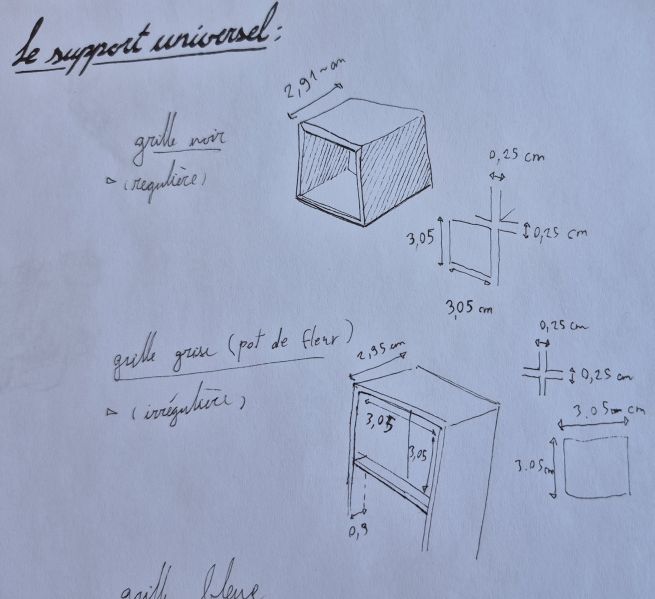 Le support universel :
2,91 cm
grille noir
(regulière)
0,25 cm
0,25 cm
3,05
3,05 cm
grille grise (pot de fleur)
(irrégulière)
2,95 cm
0,25 cm
0,25 cm
3,05
3,05
3.05 cm
3.05cm
0,9
grille bleue